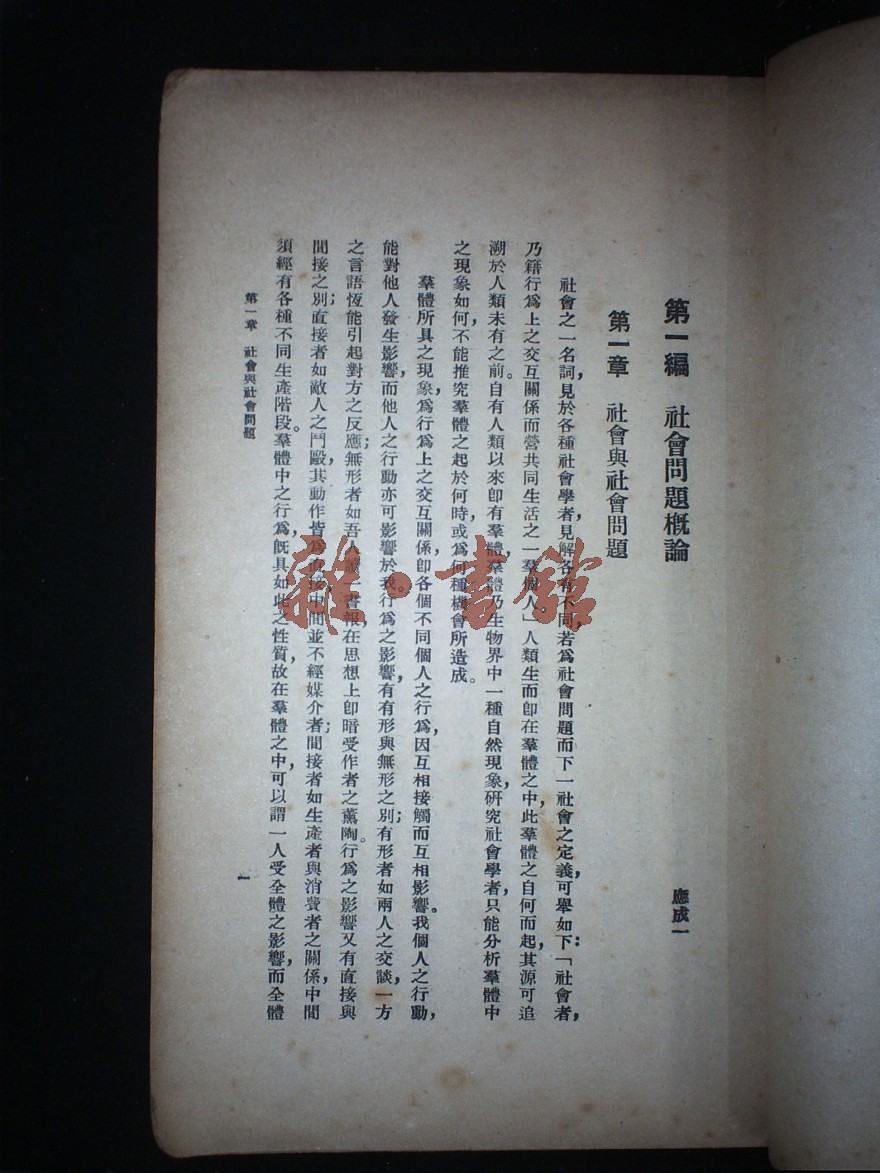 第一編　社會問題概論
應成一
第一章　社會與社會問題
社會之一名詞，見於各種社會學者，見解各有不同，若爲社會問題而下一社會之定義，可舉如下：「社會者，
乃藉行爲上之交互關係而營共同生活之一羣個人」人類生而卽在羣體之中，此羣體之自何而起，其源可追
溯於人類未有之前。自有人類以來卽有羣體，羣體乃生物界中一種自然現象，研究社會學者，只能分析羣體中
之現象如何，不能推究羣體之起於何時，或爲何種機會所造成。
羣體所具之現象，爲行爲上之交互關係，卽各個不同個人之行爲，因互相接觸而互相影響。我個人之行動，
能對他人發生影響，而他人之行動亦可影響於我。行爲之影響，有有形與無形之別；有形者如兩人之交談，一方
之言語恆能引起對方之反應；無形者如吾人讀一書報，在思想上卽暗受作者之薰陶。行爲之影響又有直接與
間接之別；直接者如敵人之鬥毆，其動作皆爲直接，中間並不經媒介者；間接者如生產者與消費者之關係，中間
須經有各種不同生產階段。羣體中之行爲，旣具如此之性質，故在羣體之中，可以謂一人受全體之影響，而全體
第一章　社會與社會問題
一
雜·書館